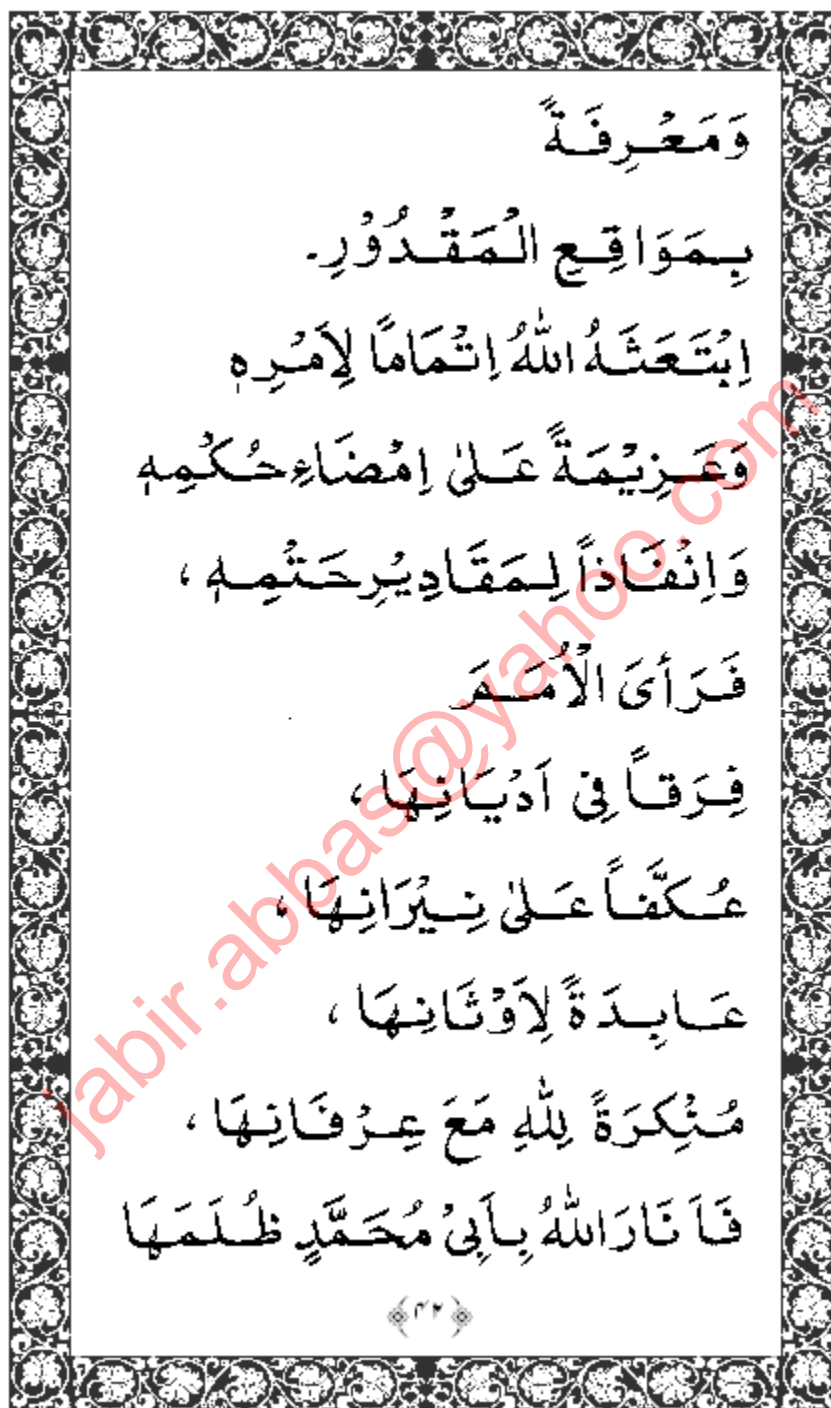 وَمَعْرِفَةً
بِمَوَاقِعِ الْمَقْدُوْرِ۔
اِبْتَعَثَهُ اللّٰهُ اِتْمَامًا لِاَمْرِهٖ
وَعَزِيْمَةً عَلٰى اِمْضَاءِ حُكْمِهٖ
وَاِنْفَاذاً لِمَقَادِيْرِ حَتْمِهٖ ،
فَرَأىَ الْاُمَمَ
فِرَقاً فِىْ اَدْيَانِهَا ،
عُكَّفاً عَلٰى نِيْرَانِهَا ،
عَابِدَةً لِاَوْثَانِهَا ،
مُنْكِرَةً لِلّٰهِ مَعَ عِرْفَانِهَا ،
فَاَنَارَ اللّٰهُ بِاَبِىْ مُحَمَّدٍ ظُلَمَهَا
۴۲
jabir.abbas@yahoo.com